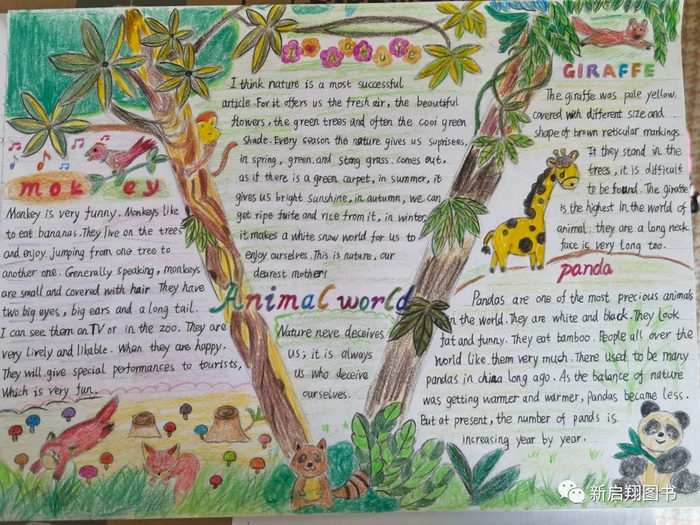 mokey
Monkey is very funny. Monkeys like
to eat bananas. They live on the trees
and enjoy jumping from one tree to
another one. Generally speaking, monkeys
are small and covered with hair They have
two big eyes, big ears and a long tail.
I can see them on TV or in the zoo. They are
very lively and likable. When they are happy.
They will give special performances to tourists,
Which is very fun.
I think nature is a most successful
article For it offers us the fresh air, the beautiful
flowers, the green trees and often the cool green
shade. Every season the nature gives us suprisens,
in spring, green and stong grass. comes out.
as if there is a green carpet, in summer, it
gives us bright sunshine, in autumn, we can
get ripe fuite and rice from it, in winter
it makes a white snow world for us to
enjoy ourselves. This is nature, our
dearest mother!
Animal world
Nature neve deceives
us; it is always
us who deceive
ourselves.
GIRAFFE
The giraffe was pale yellow,
covered with different size and
shape of brown reticular markings
If they stand in the
trees, it is difficult
to be found. The giraffe
is the highest in the world of
animal. they are a long neck
face is very long too.
panda
Pandas are one of the most precious animals
in the world. They are white and black. They look
fat and funny. They eat bamboo. People all over the
world like them very much. There used to be many
pandas in china long ago. As the balance of nature
was getting warmer and warmer, Pandas became less.
But at present, the number of pands is
increasing year by year.
新启翔图书